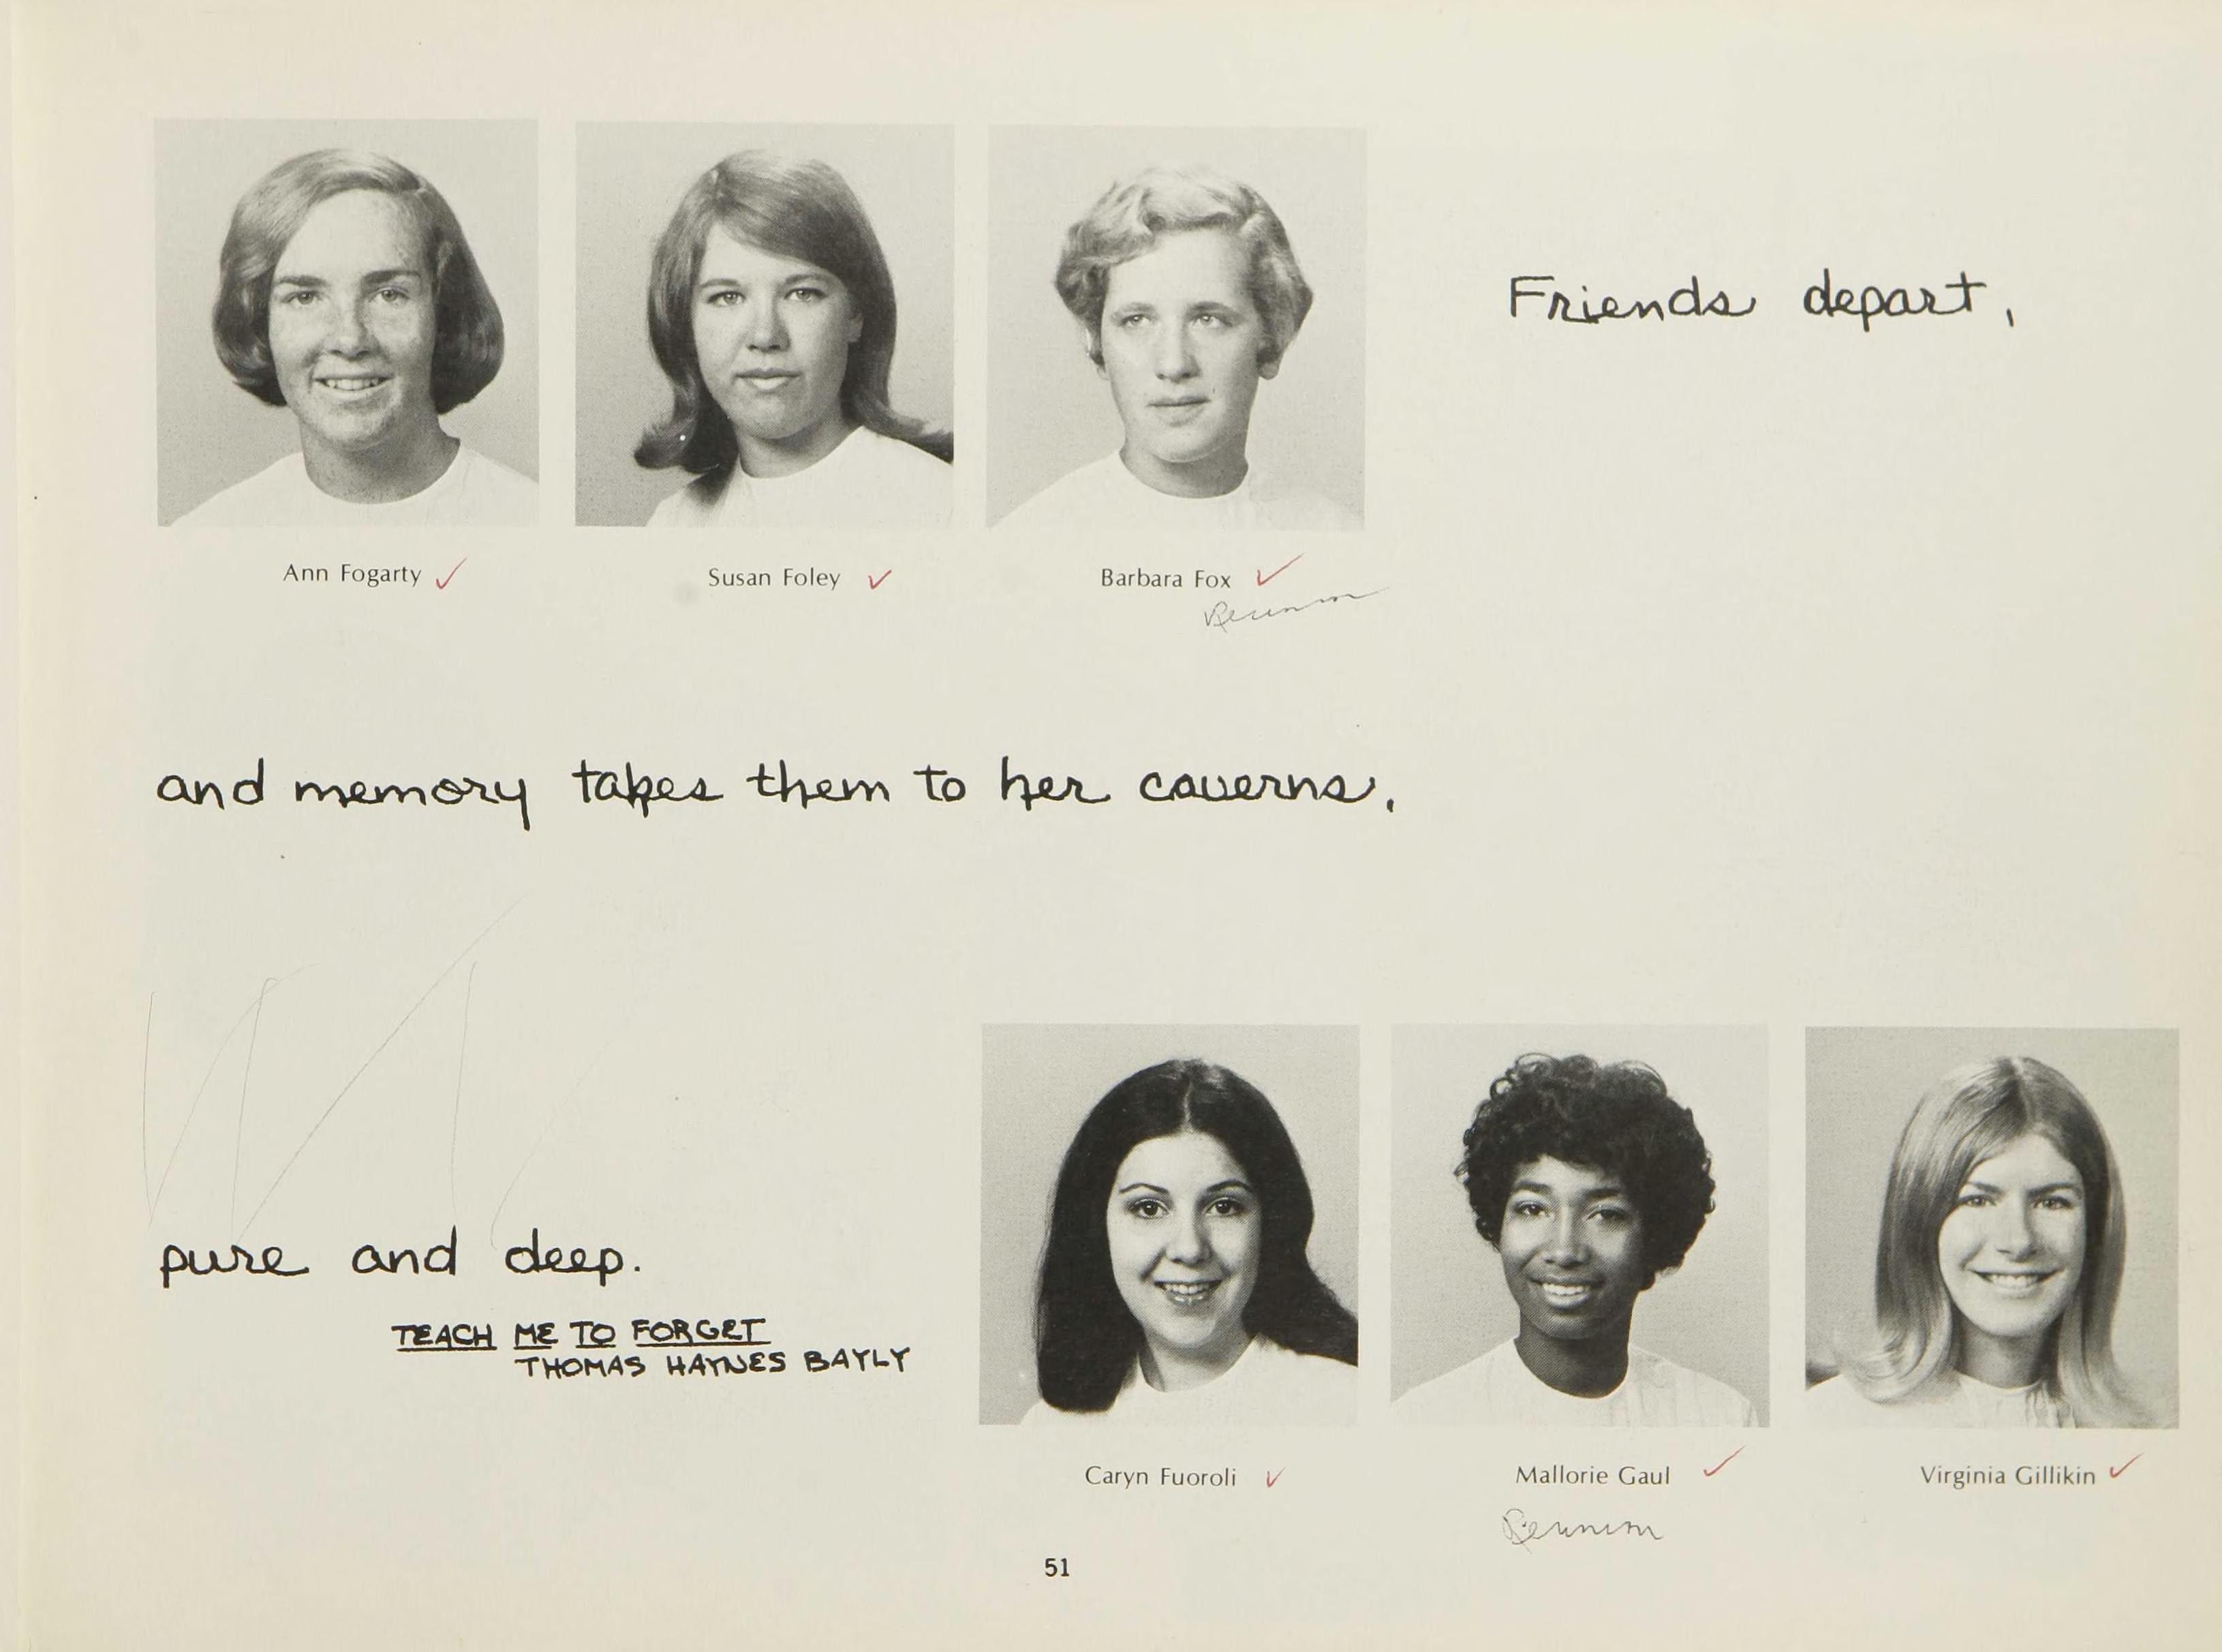 Friends depart,
Ann Fogarty ✓
Susan Foley ✓
Barbara Fox ✓
Reunion
and memory takes them to her caverns,
pure and deep.
TEACH ME TO FORGET
THOMAS HAYNES BAYLY
Caryn Fuoroli ✓
Mallorie Gaul ✓
Reunion
Virginia Gillikin ✓
51